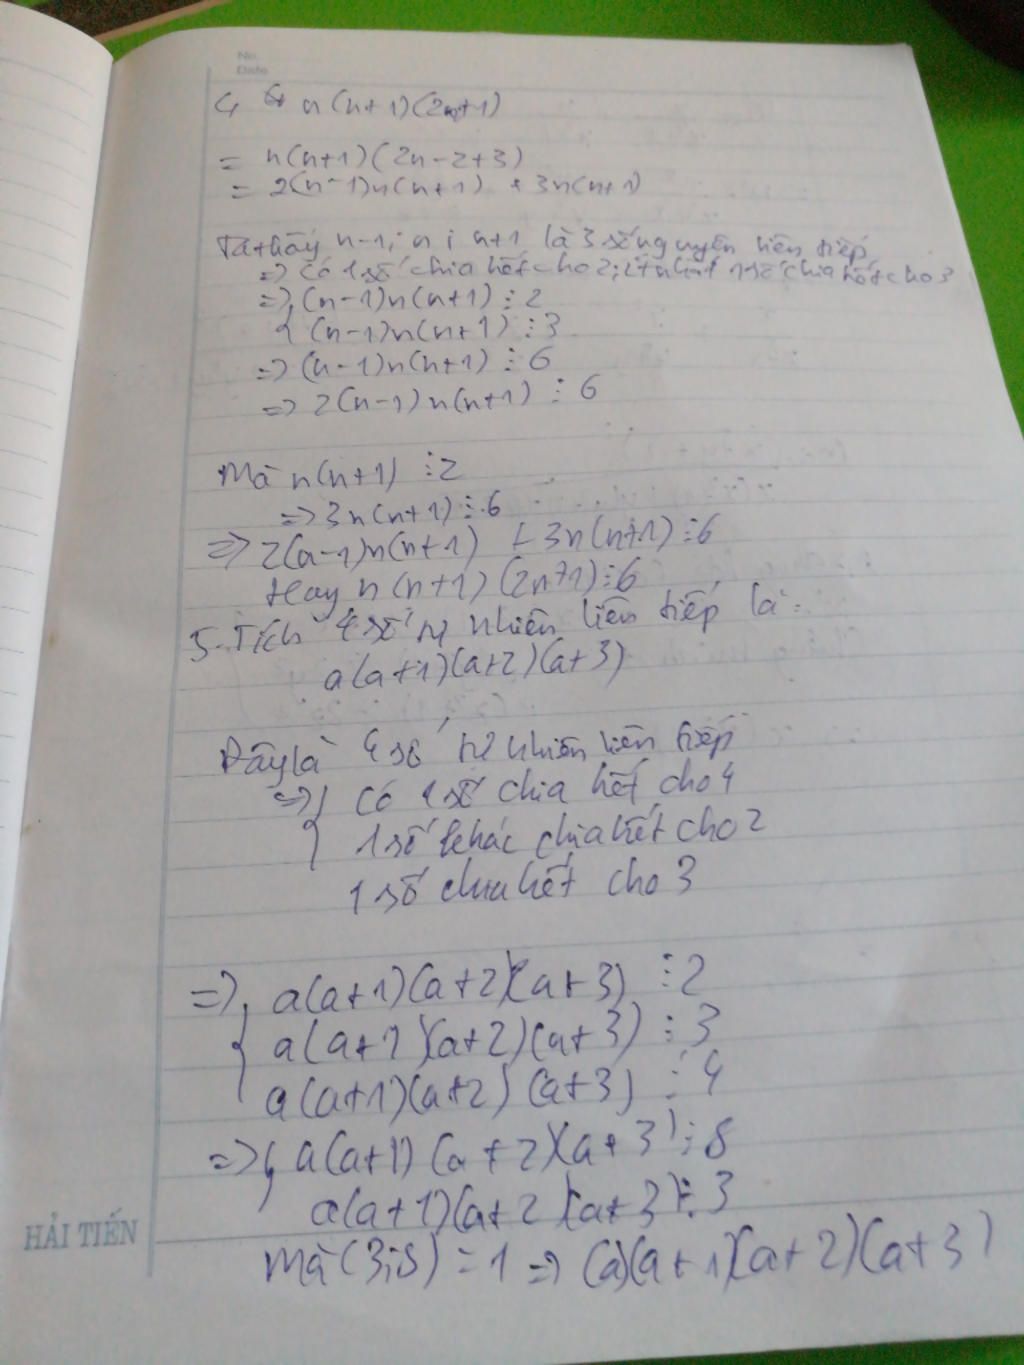 No.
Date
4 n(n+1)(2n+1)
= n(n+1)(2n-2+3)
= 2(n-1)n(n+1) + 3n(n+1)
Ta thấy n-1; n; n+1 là 3 số nguyên liên tiếp
=> Có 1 số chia hết cho 2; ít nhất 1 số chia hết cho 3
=> { (n-1)n(n+1) ⋮ 2
(n-1)n(n+1) ⋮ 3
=> (n-1)n(n+1) ⋮ 6
=> 2(n-1)n(n+1) ⋮ 6
Mà n(n+1) ⋮ 2
=> 3n(n+1) ⋮ 6
=> 2(n-1)n(n+1) + 3n(n+1) ⋮ 6
Hay n(n+1)(2n+1) ⋮ 6
5. Tích 4 số tự nhiên liên tiếp là:
a(a+1)(a+2)(a+3)
Đây là 4 số tự nhiên liên tiếp
=> { Có 1 số chia hết cho 4
1 số khác chia hết cho 2
1 số chia hết cho 3
=> { a(a+1)(a+2)(a+3) ⋮ 2
a(a+1)(a+2)(a+3) ⋮ 3
a(a+1)(a+2)(a+3) ⋮ 4
=> { a(a+1)(a+2)(a+3) ⋮ 8
a(a+1)(a+2)(a+3) ⋮ 3
Mà (3;8) = 1 => (a)(a+1)(a+2)(a+3)
HẢI TIẾN